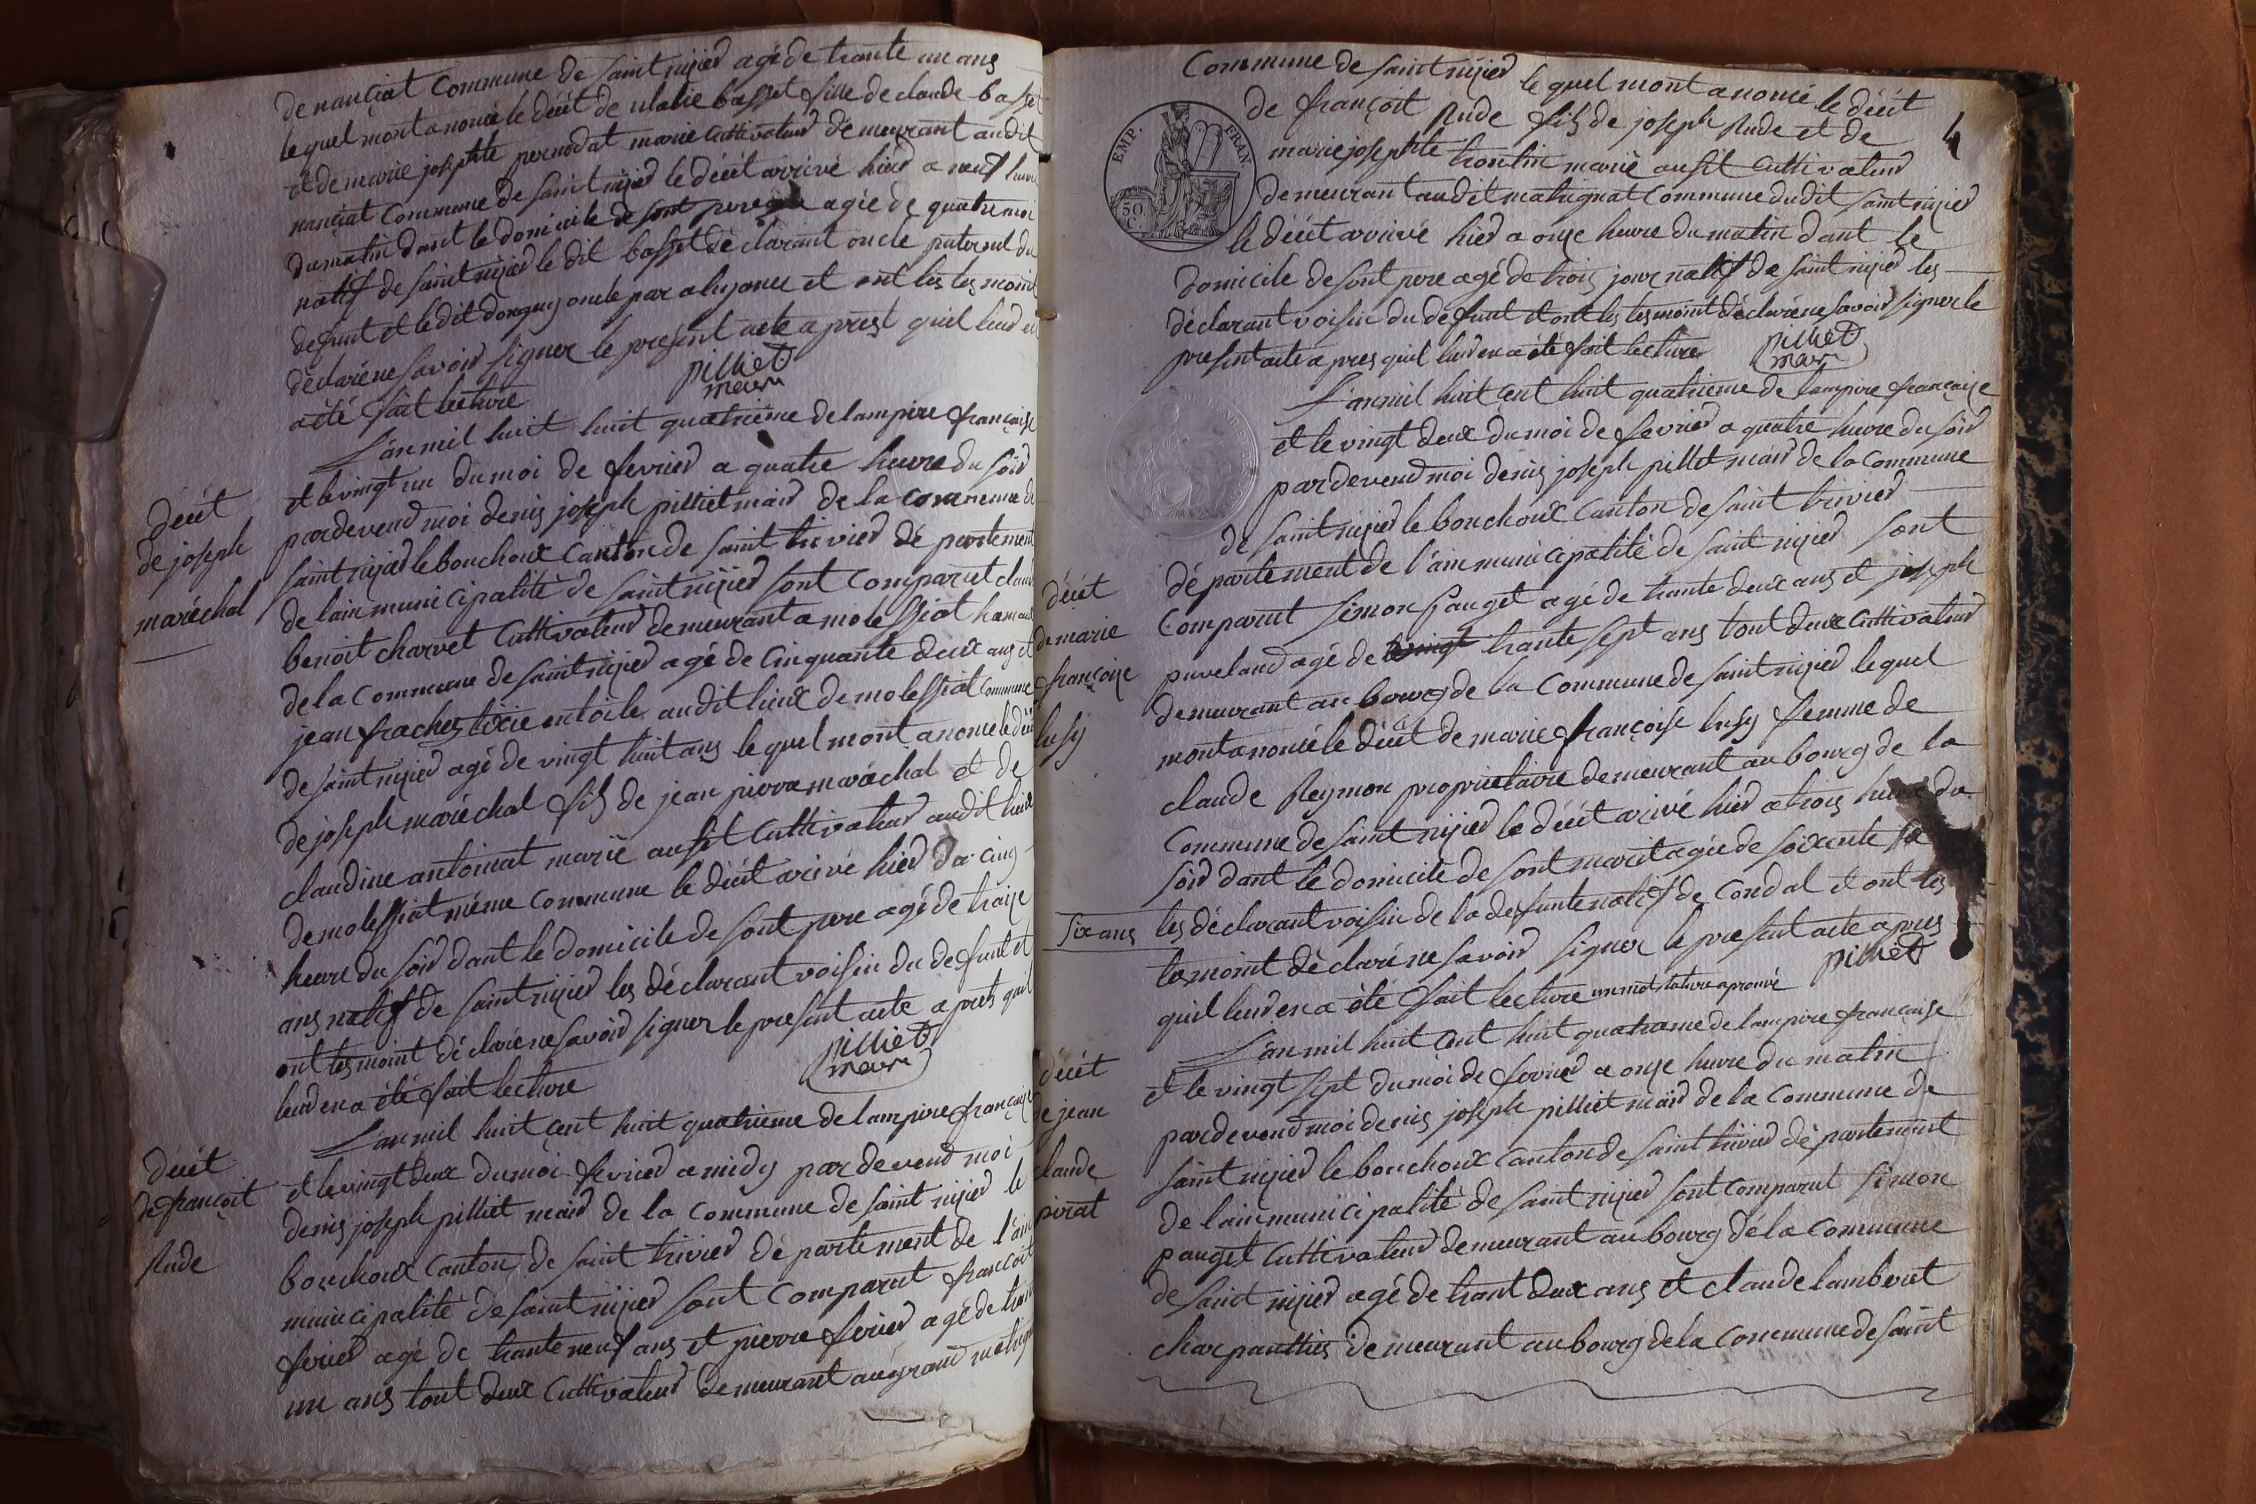 de nanciat Commune de saint nijied agé de trante un ans
le quel mont anoncé le décét de ulalie basset fille de claude basset
et de marie josephte pernodat marié Cuttivateur demeurant audit
nanciat Commune de saint nijied le décét arrivé hier a neuf heure
du matin dant le domicile de sont pere agée de quatre moi
natif de saint nijied le dit basset déclarant oncle paternel du
defunt et le dit donguy oncle par aliyance et ont les tesmoint
déclaré ne savoir signer le présent acte a prest quil leud en
a été fait lecture
pilliet
mair
L'an mil huit huit quatrième de lampire française
et le vingt un du moi de fevried a quatre heure du soir
pardevend moi denis joseph pilliet mair de la Commune de
saint nijied le bouchoux Canton de saint trivied département
de lain municipalité de saint nijied sont Comparut claude
benoit charvet Cuttivateur demeurant a molessiat hamau
de la Commune de saint nijied agé de Cinquante deux ans et
jean frachet tixie en toile audit lieux de molessiat Commune
de saint nijied agé de vingt huit ans le quel mont anoncé le décét
de joseph maréchal fils de jean pierre maréchal et de
claudine antoinat marié au sit Cuttivateur audit lieux
de molessiat même Commune le décét arivé hier a Cinq
heure du soir dant le domicile de sont pere agé de traize
ans natif de saint nijied les déclarant voisin du defunt et
ont tesmoint déclaré ne savoir signer le present acte a prest quil
leud en a été fait lecture
pilliet
mair
L'an mil huit cent huit quatrième de lampire française
et le vingt deux du moi fevried a midy par devend moi
denis joseph pilliet maird de la Commune de saint nijied le
bouchoux Canton de saint trivied département de l'ain
municipalité de saint nijied sont Comparut françoit
feried agé de trante neuf ans et pierre feried agé de trante
un ans tout deux Cuttivateur demeurant augrand matignat
décét
de joseph
maréchal
décét
de françoit
Rude
4
EMP. FRAN
50
C
Commune de saint nijied le quel mont anoncé le décét
de françoit Rude fils de joseph Rude et de
marie josephte trontin marié au sit Cuttivateur
demeurant audit matignat Commune dudit saint nijied
le décét arrivé hier a onze heure du matin dant le
domicile de sont pere agé de trois jour natif de saint nijied les
déclarant voisin du defunt et ont les tesmoint déclaré ne savoir signer le
present acte a pres quil leud en a été fait lecture
pilliet
mair
L'an mil huit cent huit quatrieme de lampire française
et le vingt deux du moi de fevried a quatre heure du soir
pardevend moi denis joseph pilliet mair de la Commune
de saint nijied le bouchoux Canton de saint trivied
département de l'ain municipalité de saint nijied sont
Comparut simon pauget agé de trante deux ans et joseph
puveland agé de vingt trante sept ans tout deux Cuttivateur
demeurant au bourg de la Commune de saint nijied le quel
mont anoncé le décét de marie françoise lusy femme de
claude Reymon proprietaire demeurant au bourg de la
Commune de saint nijied le décét arivé hier a trois heure du
soir dant le domicile de sont marit agée de soixante
six ans les déclarant voisin de la defunte natif de Condal et ont les
tesmoint déclaré ne savoir signer le present acte a pres
quil leud en a été fait lecture un mot rature aprouvé
pilliet
L'an mil huit cent huit quatrieme de lampire française
et le vingt sept du moi de fevried a onze heure du matin
pardevend moi denis joseph pilliet mair de la Commune de
saint nijied le bouchoux Canton de saint trivied département
de lain municipalité de saint nijied sont Comparut simon
pauget Cuttivateur demeurant au bourg de la Commune
de saint nijied agé de trant deux ans et claude lamberet
charpanthier demeurant au bourg de la Commune de saint
décét
de marie
françoise
lusy
décét
de jean
claude
pirat